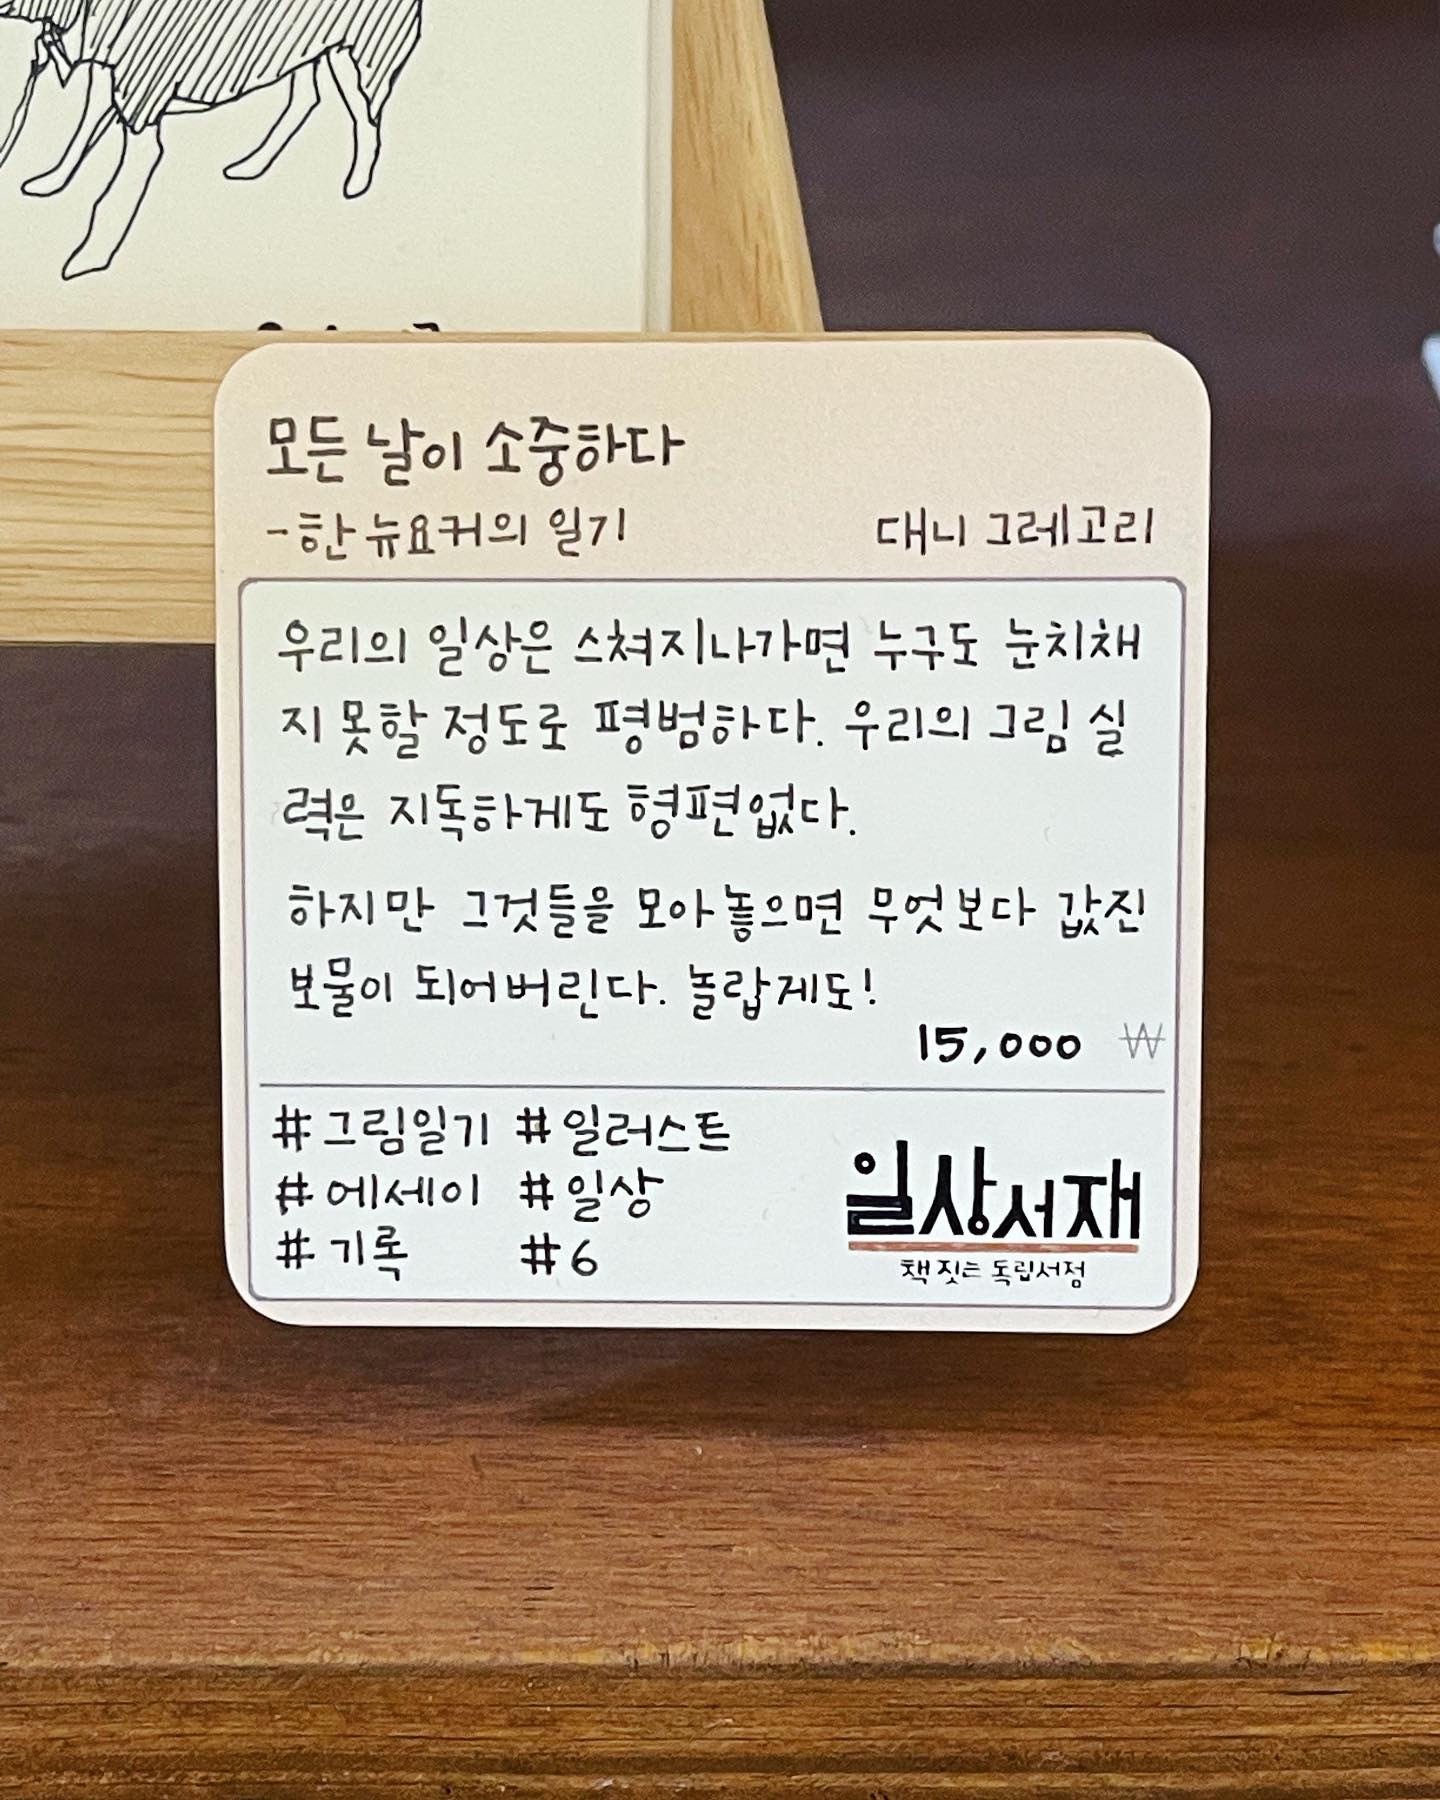 모든 날이 소중하다
-한 뉴요커의 일기 대니 그레고리
우리의 일상은 스쳐지나가면 누구도 눈치채
지 못할 정도로 평범하다. 우리의 그림 실
력은 지독하게도 형편없다.
하지만 그것들을 모아놓으면 무엇보다 값진
보물이 되어버린다. 놀랍게도!
15,000 ₩
#그림일기 #일러스트
#에세이 #일상
#기록 #6
일상서재
책 짓는 독립서점